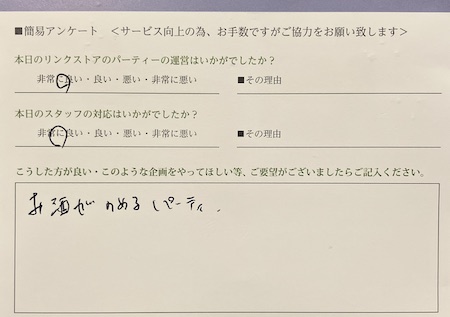 ■簡易アンケート ＜サービス向上の為、お手数ですがご協力をお願い致します＞
本日のリンクストアのパーティーの運営はいかがでしたか？
非常に良い・良い・悪い・非常に悪い ■その理由
本日のスタッフの対応はいかがでしたか？
非常に良い・良い・悪い・非常に悪い ■その理由
こうした方が良い・このような企画をやってほしい等、ご要望がございましたらご記入ください。
お酒がのめるパーティ.